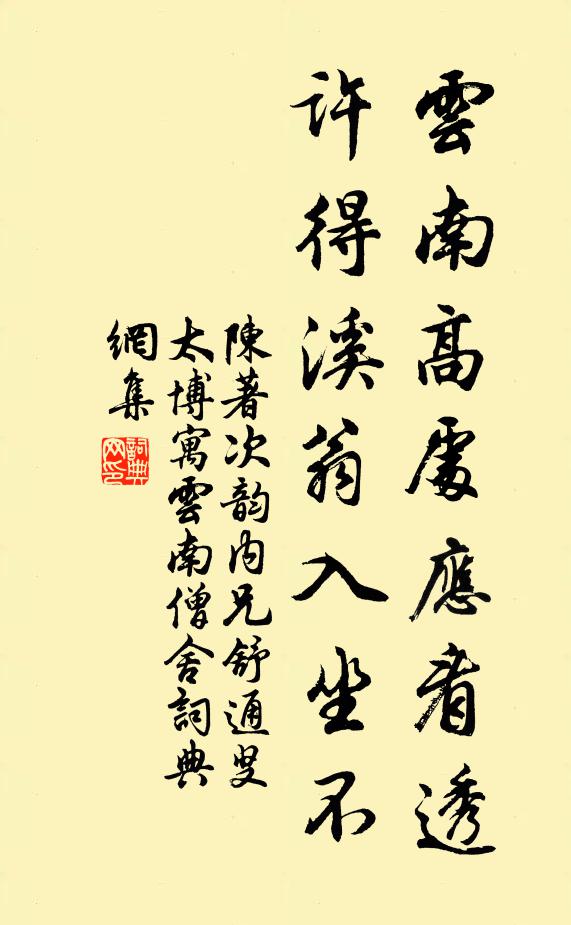 雲南高處應看透
許得溪翁入坐不
陳著次韵内兄舒通叟
太博寓雲南僧舍詞典
網集
詞典
网印